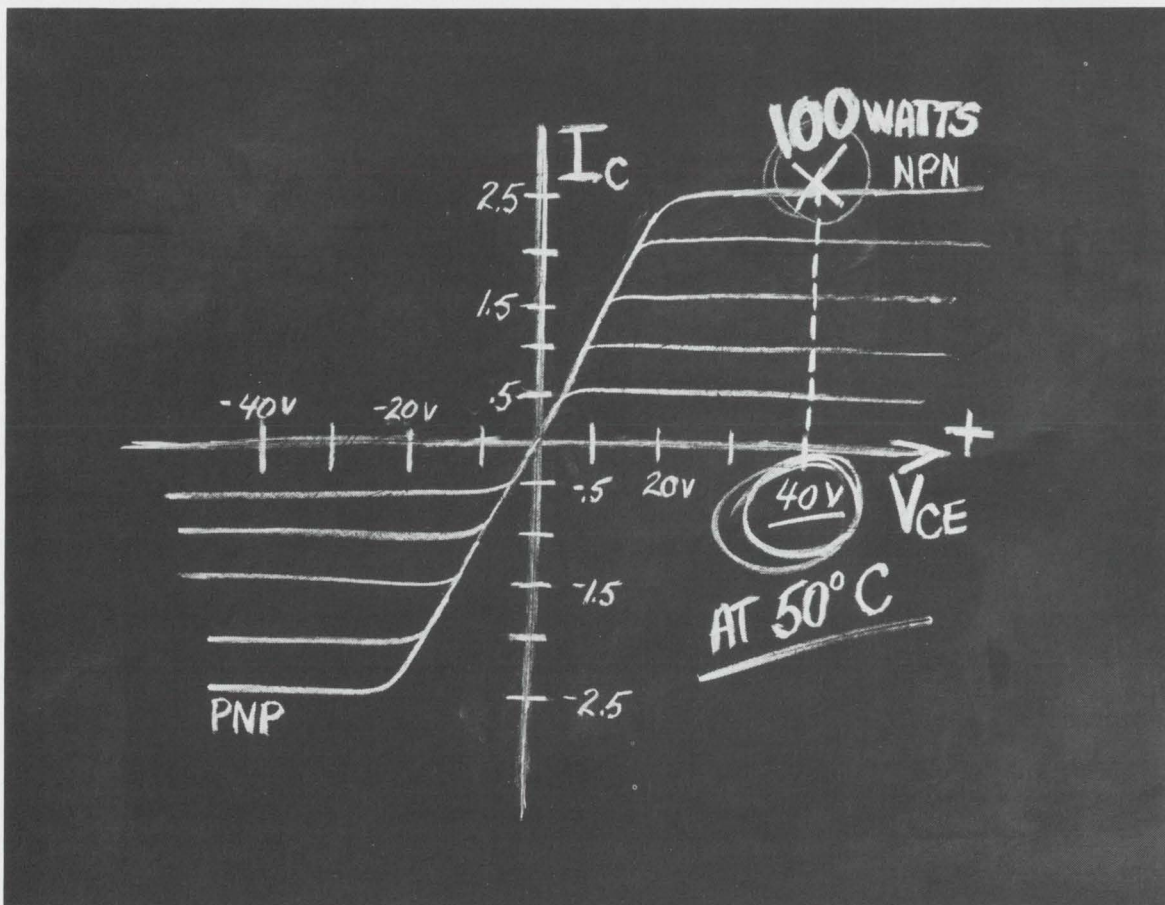 100 WATTS
I_C
NPN
2.5
1.5
.5
-40V
-20V
+
-.5
20V
40V
V_CE
-1.5
AT 50° C
-2.5
PNP